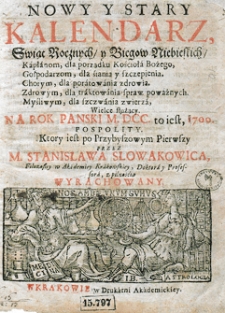 NOWY Y STARY
KALENDARZ,
Swiąt Rocznych/ y Biegow Niebieskich/
Kápłánom, dla porządku Kościołá Bożego,
Gospodarzom, dla śiania y szczepienia.
Chorym, dla porátowánia zdrowia.
Zdrowym, dla tráktowánia spraw poważnych.
Myśliwym, dla szczwánia zwierzá,
Wielce służący.
NA ROK PANSKI M. DCC. to iest, 1700.
POSPOLITY.
Ktory iest po Przybyszowym Pierwszy
PRZEZ
M. STANISŁAWA SŁOWAKOWICA,
w Akádemiey Krákowskiey, Doktorá y Profes-
sorá, z pilnośćią
WYRACHOWANY.
ASTROLOGIA
W KRAKOWIE w Drukárni Akádemickiey.
15.797